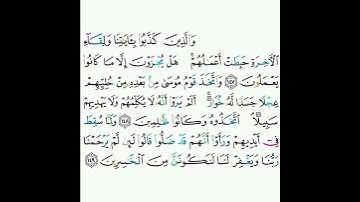 وَٱلَّذِينَ كَذَّبُوا۟ بِـَٔايَـٰتِنَا وَلِقَآءِ
ٱلْـَٔاخِرَةِ حَبِطَتْ أَعْمَـٰلُهُمْ ۚ هَلْ يُجْزَوْنَ إِلَّا مَا كَانُوا۟
يَعْمَلُونَ ﴿١٤٧﴾ وَٱتَّخَذَ قَوْمُ مُوسَىٰ مِنۢ بَعْدِهِۦ مِنْ حُلِيِّهِمْ
عِجْلًا جَسَدًا لَّهُۥ خُوَارٌ ۚ أَلَمْ يَرَوْا۟ أَنَّهُۥ لَا يُكَلِّمُهُمْ وَلَا يَهْدِيهِمْ
سَبِيلًا ۘ ٱتَّخَذُوهُ وَكَانُوا۟ ظَـٰلِمِينَ ﴿١٤٨﴾ وَلَمَّا سُقِطَ
فِىٓ أَيْدِيهِمْ وَرَأَوْا۟ أَنَّهُمْ قَدْ ضَلُّوا۟ قَالُوا۟ لَئِن لَّمْ يَرْحَمْنَا
رَبُّنَا وَيَغْفِرْ لَنَا لَنَكُونَنَّ مِنَ ٱلْخَـٰسِرِينَ ﴿١٤٩﴾